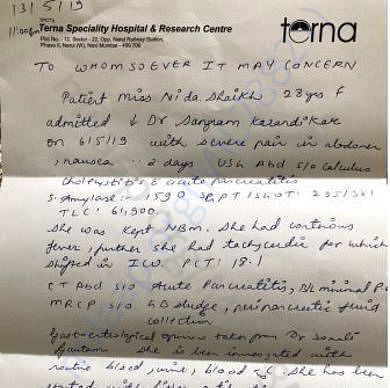 13/5/19
11:00pm
Terna Speciality Hospital & Research Centre
terna
Plot No. - 12, Sector - 22, Opp. Nerul Railway Station,
Phase II, Nerul (W), Navi Mumbai - 400 706
TO WHOMSOEVER IT MAY CONCERN
Patient Miss Nida Shaikh 28yrs F
admitted ↓ Dr Sangram Karandikar
on 6/5/19 with severe pain in abdomen
, nausea 2 days USG Abd s/o calculus
cholecystitis c acute pancreatitis
S. Amylase :- 1590 SGPT/SGOT: 295/321
TLC: 61,900.
She was kept NBM. She had continous
fever, further she had tachycardia for which
shifted in ICU. PCT: 18.1
CT Abd s/o Acute Pancreatitis, B/L minimal
MRCP s/o GB sludge, peripancreatic fluid
collection
Gastroenterological opinion taken from Dr Sonali
Gautam She is been investigated with
routine blood, urine, blood She has been
started with